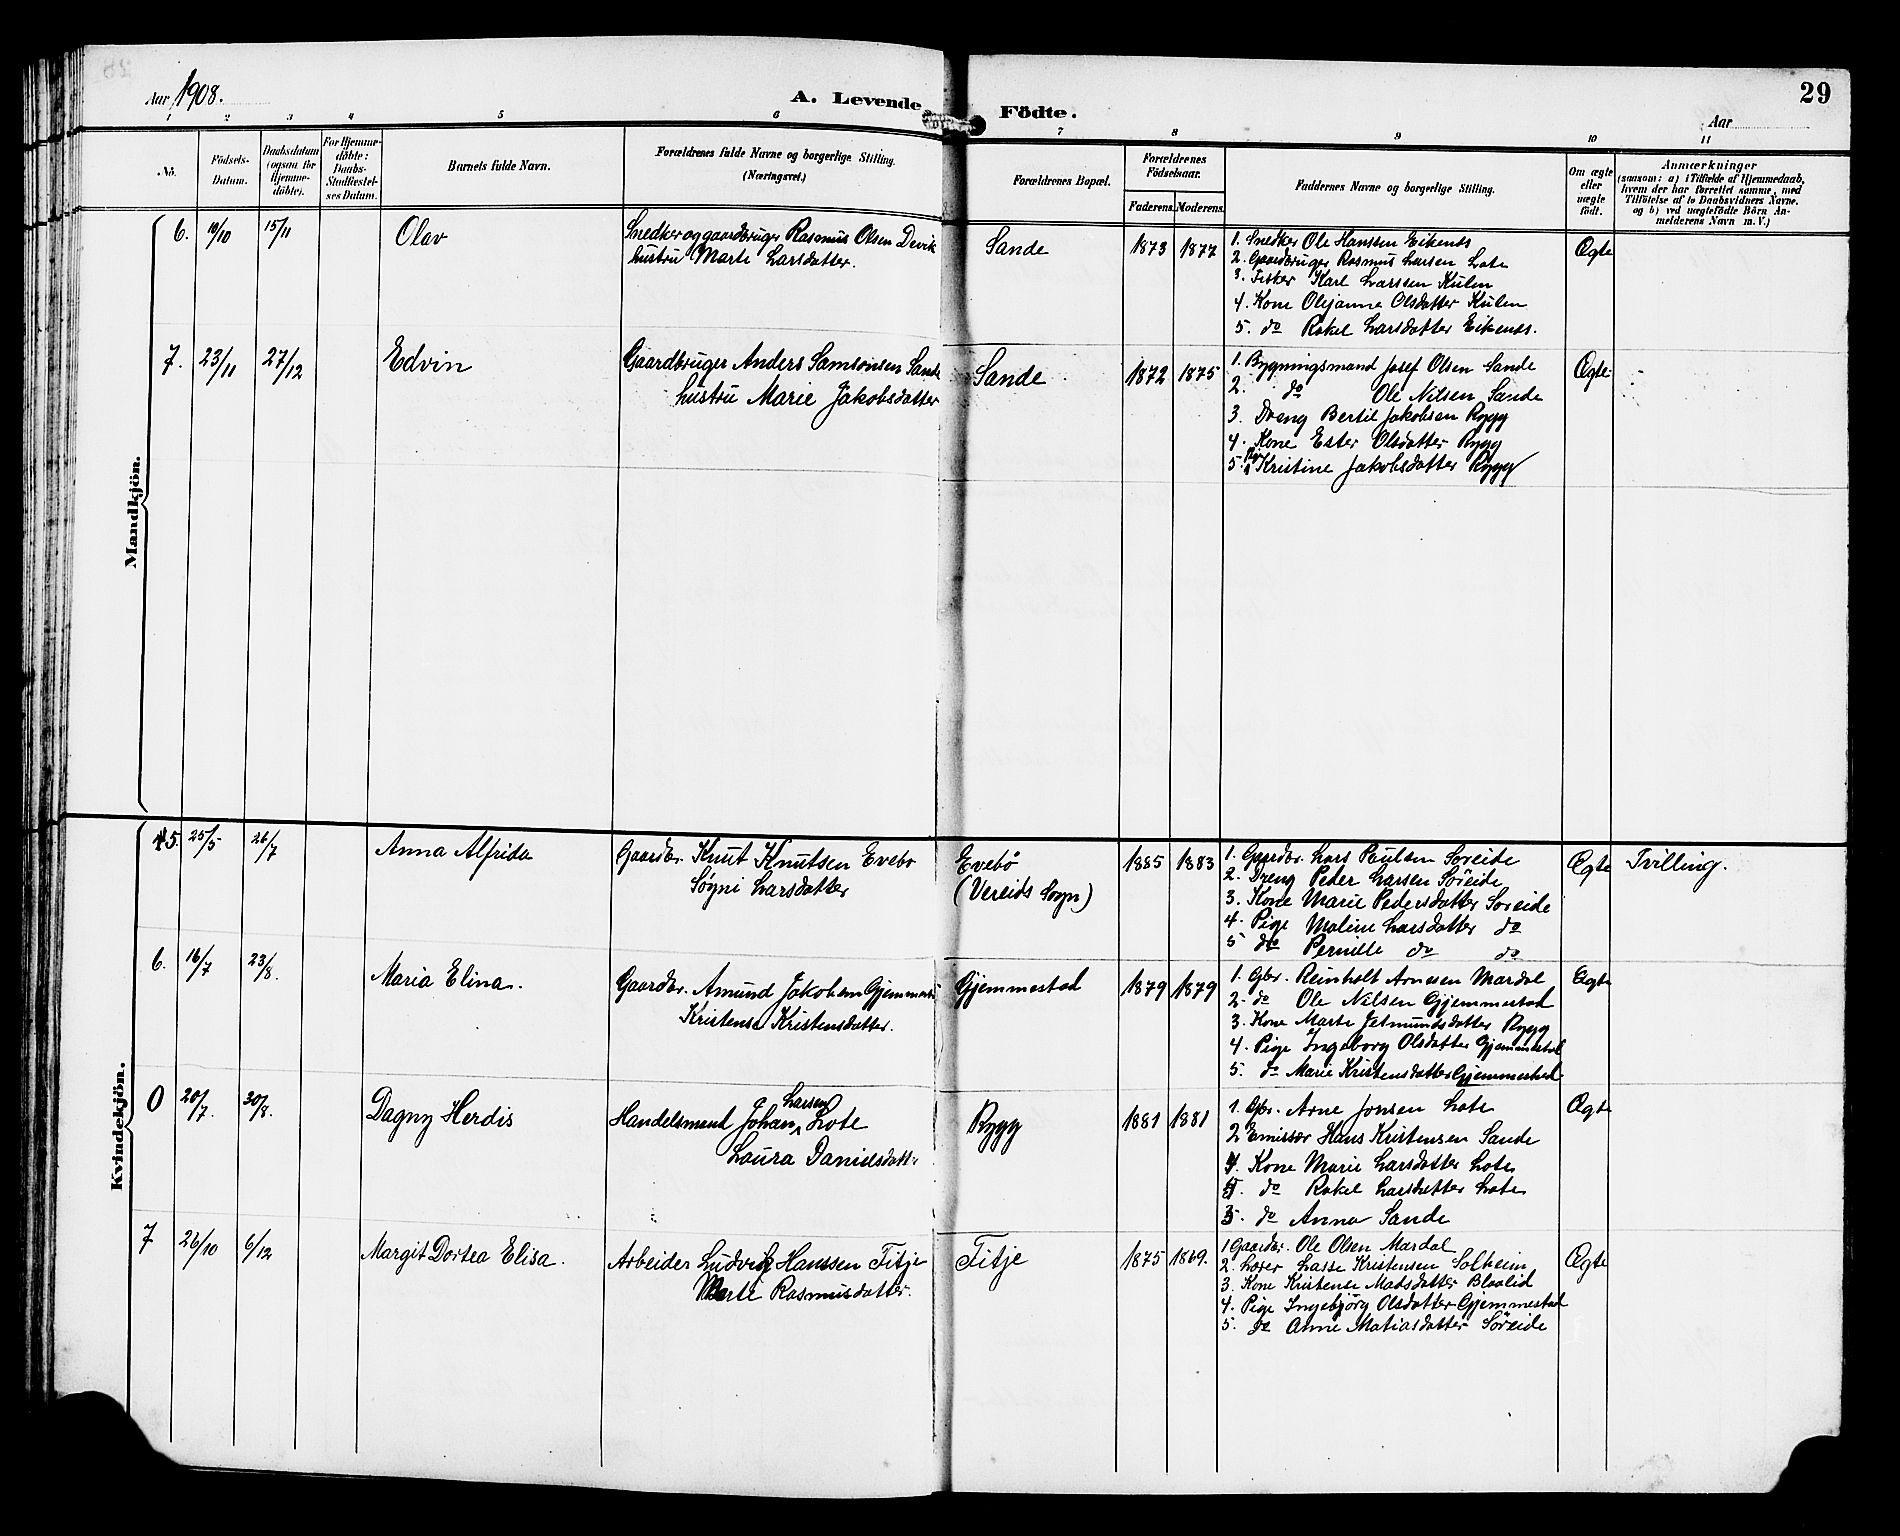 Aar 1908.
A. Levende Födte.
29
Aar
1 2 3 4 5 6 7 8 9 10 11
No.
Födsels-Datum.
Daabsdatum (ogsaa for Hjemme-döbte).
For Hjemme-döbte: Daabs-Stadfæstel-ses Datum.
Barnets fulde Navn.
Forældrenes fulde Navne og borgerlige Stilling. (Næringsvei.)
Forældrenes Bopæl.
Forældrenes Födselsaar.
Faderens. Moderens.
Faddernes Navne og borgerlige Stilling.
Om ægte eller uægte födt.
Anmærkninger
(saasom: a) i Tilfælde af Hjemmedaab,
hvem der har forrettet samme, med
Tilföielse af to Daabsvidners Navne.
og b) ved uægtefödte Börn An-
melderens Navn m. V.)
Mandkjön.
6. 10/10 15/11 Olav
Snedker og gaardbruger Rasmus Olsen Devik
hustru Marte Larsdatter.
Sande 1873 1877
1. Snedker Ole Hanssen Eikenes
2. Gaardbruger Rasmus Larsen Lote
3. Fisker Karl Larssen Kulen
4. Kone Olejanna Olsdatter Kulen
5. do Rakel Larsdatter Eikenes.
Ægte
7. 23/11 27/12 Edvin
Gaardbruger Anders Samsonsen Sande
hustru Marie Jakobsdatter
Sande 1872 1875
1. Bygningsmand Josef Olsen Sande
2. do Ole Nilsen Sande
3. Dreng Bertil Jakobsen Rygg
4. Kone Ester Olsdatter Rygg
5. Pige Kristine Jakobsdatter Rygg
Ægte
Kvindekjön.
5. 25/5 26/7 Anna Alfrida
Gaardbr. Knut Knutsen Evebø
Søgni Larsdatter
Evebø
(Vereids Sogn)
1885 1883
1. Gaardbr. Lars Paulsen Søreide
2. Dreng Peder Larsen Söreide
3. Kone Marie Pedersdatter Søreide
4. Pige Maline Larsdatter do
5 do Pernille do do
Ægte Tvilling.
6. 16/7 23/8. Maria Elina.
Gaardbr. Amund Jakobsen Gjemmesta
Kristense Kristensdatter.
Gjemmestad 1879 1879
1. Gbr. Reinholt Arnesen Mardal
2. do Ole Nilsen Gjemmestad
3. Kone Marte Jetmundsdatter Rygg
4. Pige Ingeborg Olsdatter Gjemmestad
5. do Marie Kristensdatter Gjemmestad
Ægte
0 20/7. 30/8. Dagny Herdis
Handelsmand Johan Larsen Lote
Laura Danielsdatt.
Rygg 1881 1881
1. Gbr. Arne Jonsen Lote
2 Emissær Hans Kristensen Sande
4. Kone Marie Larsdatter Lote
5. do Rakel Larsdatter Lote
3. do Anna Sande
Ægte
7 26/10 6/12 Margit Dortea Elisa.
Arbeider Ludvik Hanssen Fitje
Marte Rasmusdatter.
Fitje 1875 1869.
1 Gaardbr. Ole Olsen Mardal
2. Lærer Lasse Kristensen Solheim
3. Kone Kristense Madsdatter Blaalid
4. Pige Ingebjörg Olsdatter Gjemmestad
5. do Anne Matiasdatter Söreide
Ægte